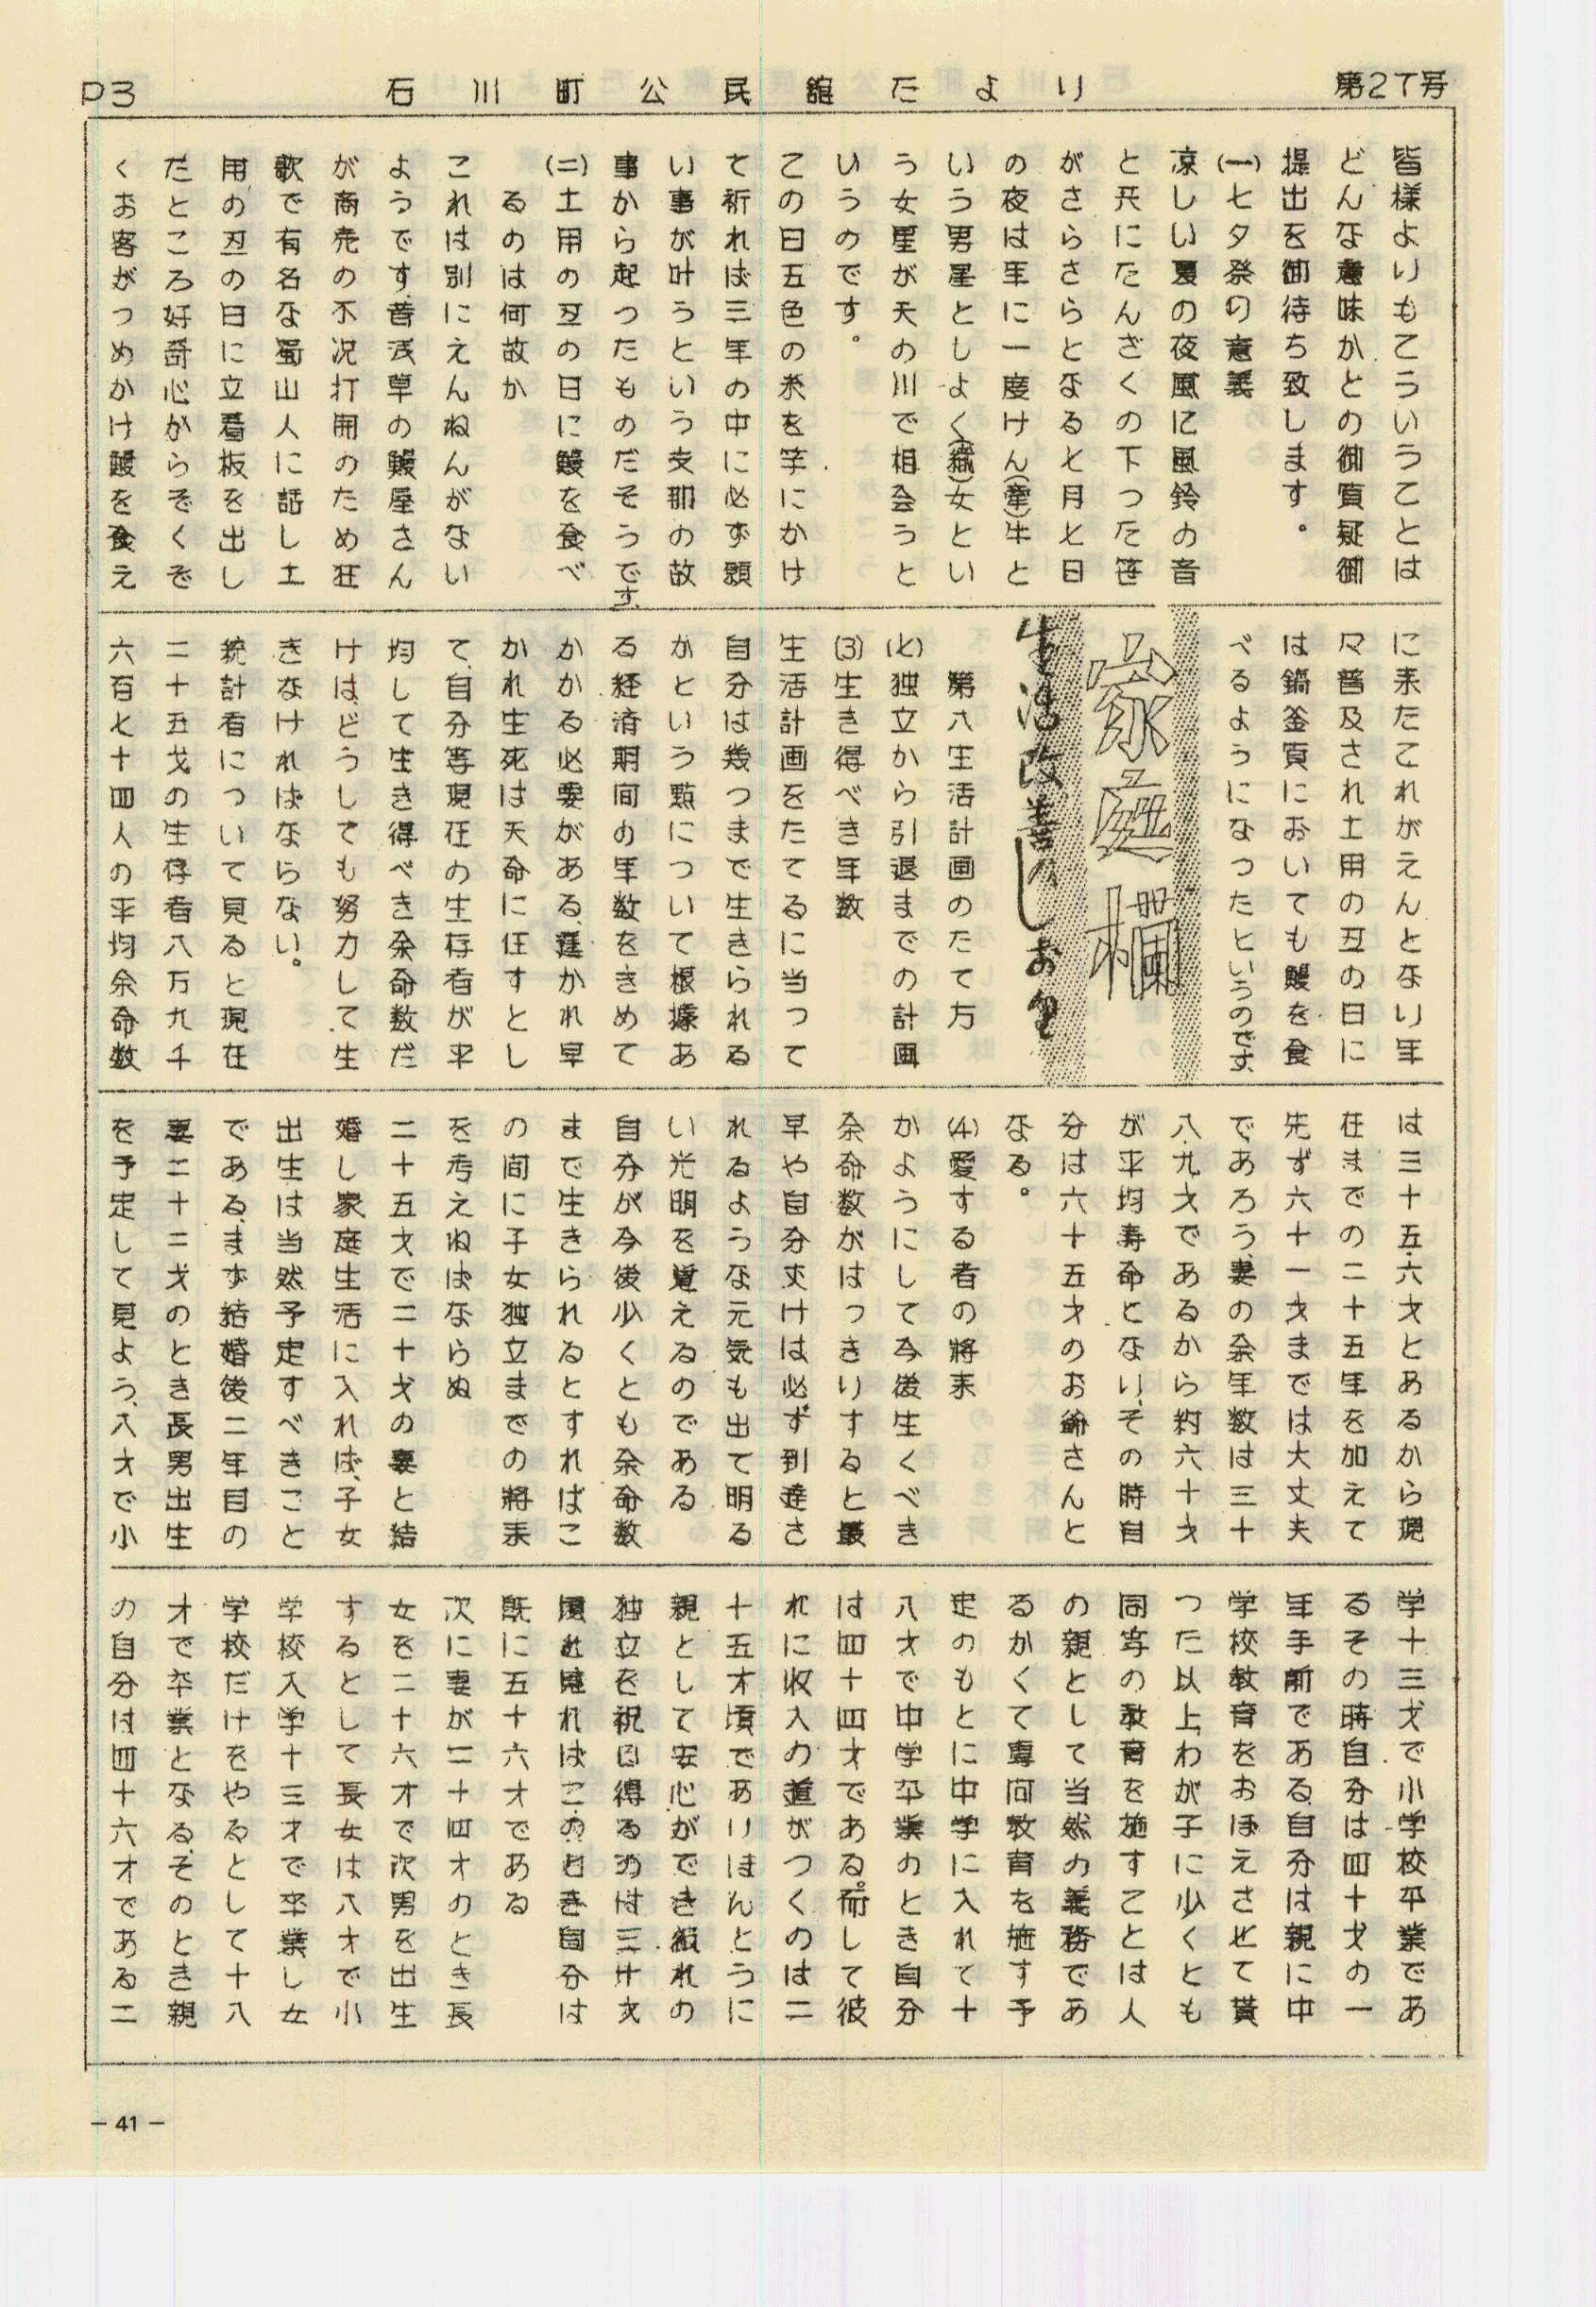 第27号
石川町公民館たより
P3
皆様よりもこういうことは
どんな意味かとの御質疑御
提出を御待ち致します。
(一)七夕祭りの意義
涼しい夏の夜風に風鈴の音
と共にたんざくの下つた笹
がさらさらとなると月と日
の夜は年に一度けん(牽)牛と
いう男星としよく(織)女とい
う女星が天の川で相会うと
いうのです。
この日五色の糸を竿にかけ
て祈れば三年の中に必ず願
い事が叶うという支那の故
事から起つたものだそうです、
(二)土用の丑の日に鰻を食べ
るのは何故か
これは別にえんねんがない
ようです、昔浅草の鰻屋さん
が商売の不況打開のため狂
歌で有名な蜀山人に話し土
用の丑の日に立看板を出し
たところ好奇心からぞくぞ
くお客がつめかけ鰻を食え
に来たこれがえんとなり年
々普及され土用の丑の日に
は鍋釜質においても鰻を食
べるようになつたというのです、
家庭欄
生活改善のしおり
第八生活計画のたて方
(七)独立から引退までの計画
(3)生き得べき年数
生活計画をたてるに当つて
自分は幾つまで生きられる
かという点について根拠あ
る経済期间の年数をきめて
かかる必要がある、遅かれ早
かれ生死は天命に任すとし
て、自分等現在の生存者が平
均して生き得べき余命数だ
けはどうしても努力して生
きなければならない。
統計看について見ると現在
二十五才の生存者八万九千
六百七十四人の平均余命数
は三十五・六才とあるから現
在までの二十五年を加えて
先ず六十一才までは大丈夫
であろう、妻の余年数は三十
八・九才であるから約六十才
が平均寿命となり、その時自
分は六十五才のお爺さんと
なる。
(4)愛する者の将来
かようにして今後生くべき
余命数がはっきりすると最
早や自分丈けは必ず到達さ
れるような元気も出て明る
い光明を覚えるのである
自分が今後少くとも余命数
まで生きられるとすればこ
の间に子女独立までの将来
を考えねばならぬ
二十五才で二十才の妻と結
婚し家庭生活に入れば、子女
出生は当然予定すべきこと
である、まず結婚後二年目の
妻二十二才のとき長男出生
を予定して見よう、八才で小
学十三才で小学校卒業であ
るその時自分は四十才の一
年手前である、自分は親に中
学校教育をおほえさせて貰
つた以上、わが子に少くとも
同等の教育を施すことは人
の親として当然の義務であ
るかくて専问教育を施す予
定のもとに中学に入れて十
八才で中学卒業のとき自分
は四十四才である。而して彼
れに収入の道がつくのは二
十五才頃でありほんとうに
親として安心ができ彼れの
独立を祝い得るのは三十才
と見ればこのとき自分は
既に五十六才である
次に妻が二十四才のとき長
女を二十六才で次男を出生
するとして長女は八才で小
学校入学十三才で卒業し女
学校だけをやるとして十八
才で卒業となる、そのとき親
の自分は四十六才である二
－41－